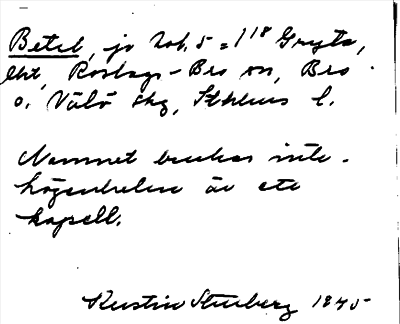 Betel, jo Rob. 5 = 1¹⁸ Gryta,
eht, Roslags-Bro sn, Bro
o. Vätö skg, Sthlms l.
Namnet brukas inte.
högenheten är ett
kapell.
Kerstin Stenberg 1945